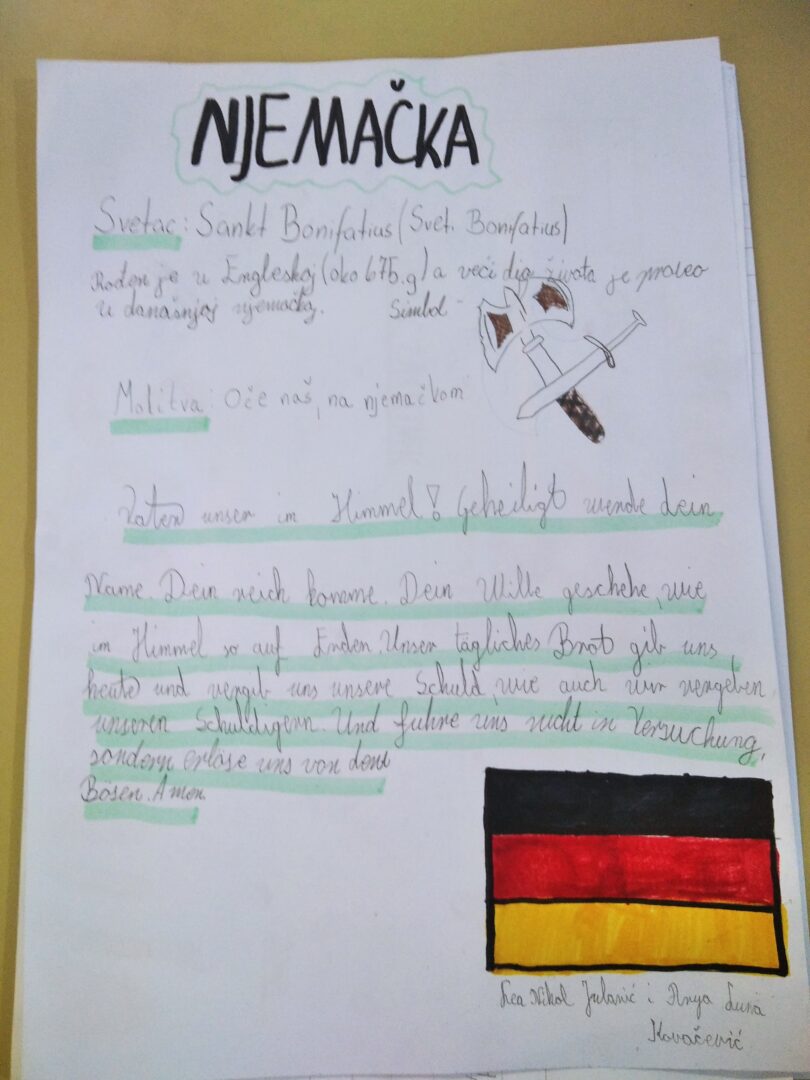 NJEMAČKA
Svetac: Sankt Bonifatius (Svet. Bonifatius)
Rođen je u Engleskoj (oko 675.g) a veći dio života je proveo
u današnjoj njemačkoj. Simbol -
Molitva: Oče naš, na njemačkom
Vater unser im Himmel! Geheiligt werde Dein
Name. Dein reich komme. Dein Wille geschehe, wie
im Himmel so auf Erden. Unser tägliches Brot gib uns
heute und vergib uns unsere Schuld, wie auch wir vergeben
unseren Schuldigern. Und fuhre uns nicht in Versuchung,
sondern erlöse uns von dem
Bösen. Amen.
Lea Nikol Julanić i Anya Luna
Kovačević